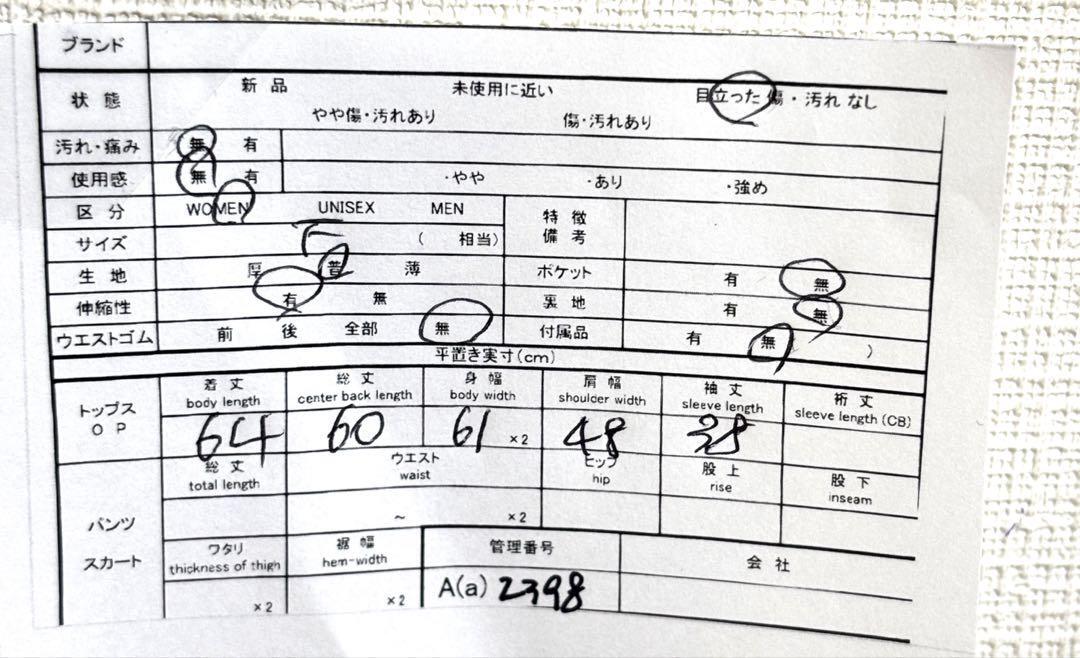 ブランド
状態 新品 未使用に近い 目立った傷・汚れ なし
やや傷・汚れあり 傷・汚れあり
汚れ・痛み 無 有
使用感 無 有 ・やや ・あり ・強め
区分 WOMEN UNISEX MEN 特徴
備考
サイズ F ( 相当)
生地 厚 普 薄 ポケット 有 無
伸縮性 有 無 裏地 有 無
ウエストゴム 前 後 全部 無 付属品 有 無 )
平置き実寸(cm)
トップス
OP
着丈 総丈 身幅 肩幅 袖丈 裄丈
body length center back length body width shoulder width sleeve length sleeve length (CB)
64 60 61 ×2 48
総丈 ウエスト ヒップ 股上 股下
total length waist hip rise inseam
パンツ ~ ×2
スカート
ワタリ 裾幅 管理番号 会社
thickness of thigh hem-width
×2 ×2 A(a) 2398